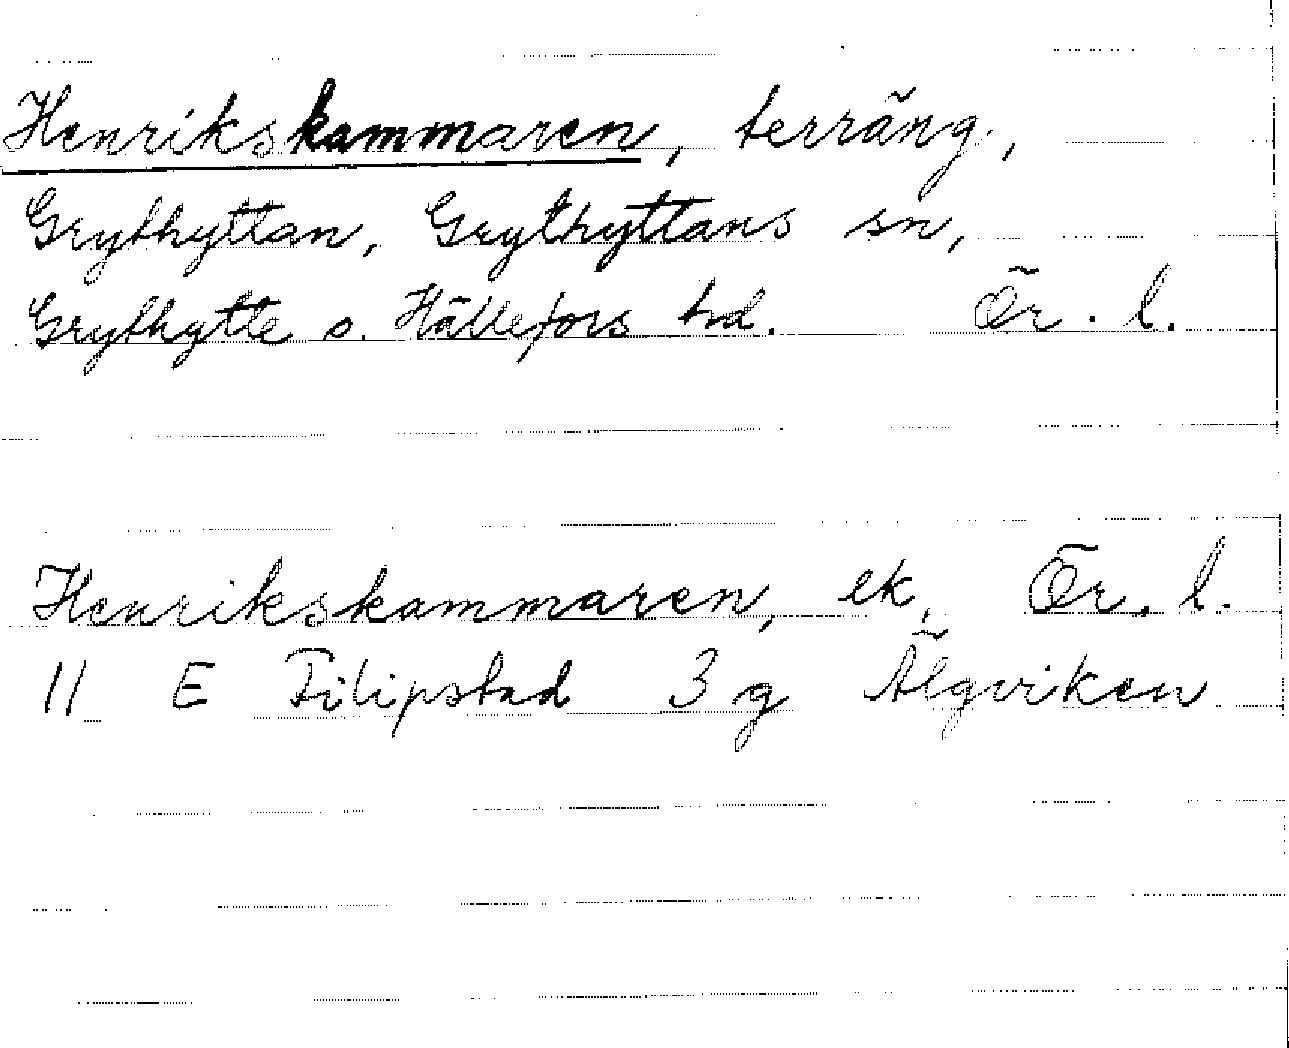 Henrikskammaren, terräng,
Grythyttan, Grythyttans sn,
Grythytte o. Hällefors hd. Ör. l.
Henrikskammaren, ek. Ör. l.
11 E Filipstad 3 g Älgviken